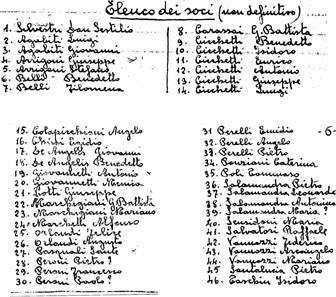 Elenco dei soci (non definitivo)
1. Silvestri San Sertilio
2. Agabiti Luigi
3. Agabiti Giovanni
4. Arrigoni Giuseppe
5. Arrigoni Stefano
6. Belli Benedetto
7. Belli Filomena
8. Carassai G. Battista
9. Cicchetti Benedetto
10. Cicchetti Isidoro
11. Cicchetti Enrico
12. Cicchetti Antonio
13. Cicchetti Giuseppe
14. Cicchetti Luigi
15. Colapicchioni Angelo
16. Chisi Egidio
17. De Angelis Giovanni
18. De Angelis Benedetto
19. Giovannetti Antonio
20. Giovannetti Nemesia
21. Lotti Giuseppe
22. Marchegiani G. Battista
23. Marchegiani Mariano
24. Marchetti Alfonso
25. Orlandi Felice
26. Orlandi Augusto
27. Pasquali Sante
28. Peroni Pietro ?
29. Peroni Francesco
30. Peroni Paolo ?
31 Perelli Emidio - 6 -
32. Perelli Angelo
33. Perelli Pietro
34. Ponziani Caterina
35. Poli Tommaso
36. Salamandra Pietro
37. Salamandra Leonardo
38. Salamandra Antonina
39. Salamandra Maria ?
40. Scusidoni Maria
41. Salvatori Raffaele
42. Vannozzi Federico
43. Vannozzi Arcangelo
44. Vannozzi Mariano
45. Santalucia Pietro
46. Isidoro